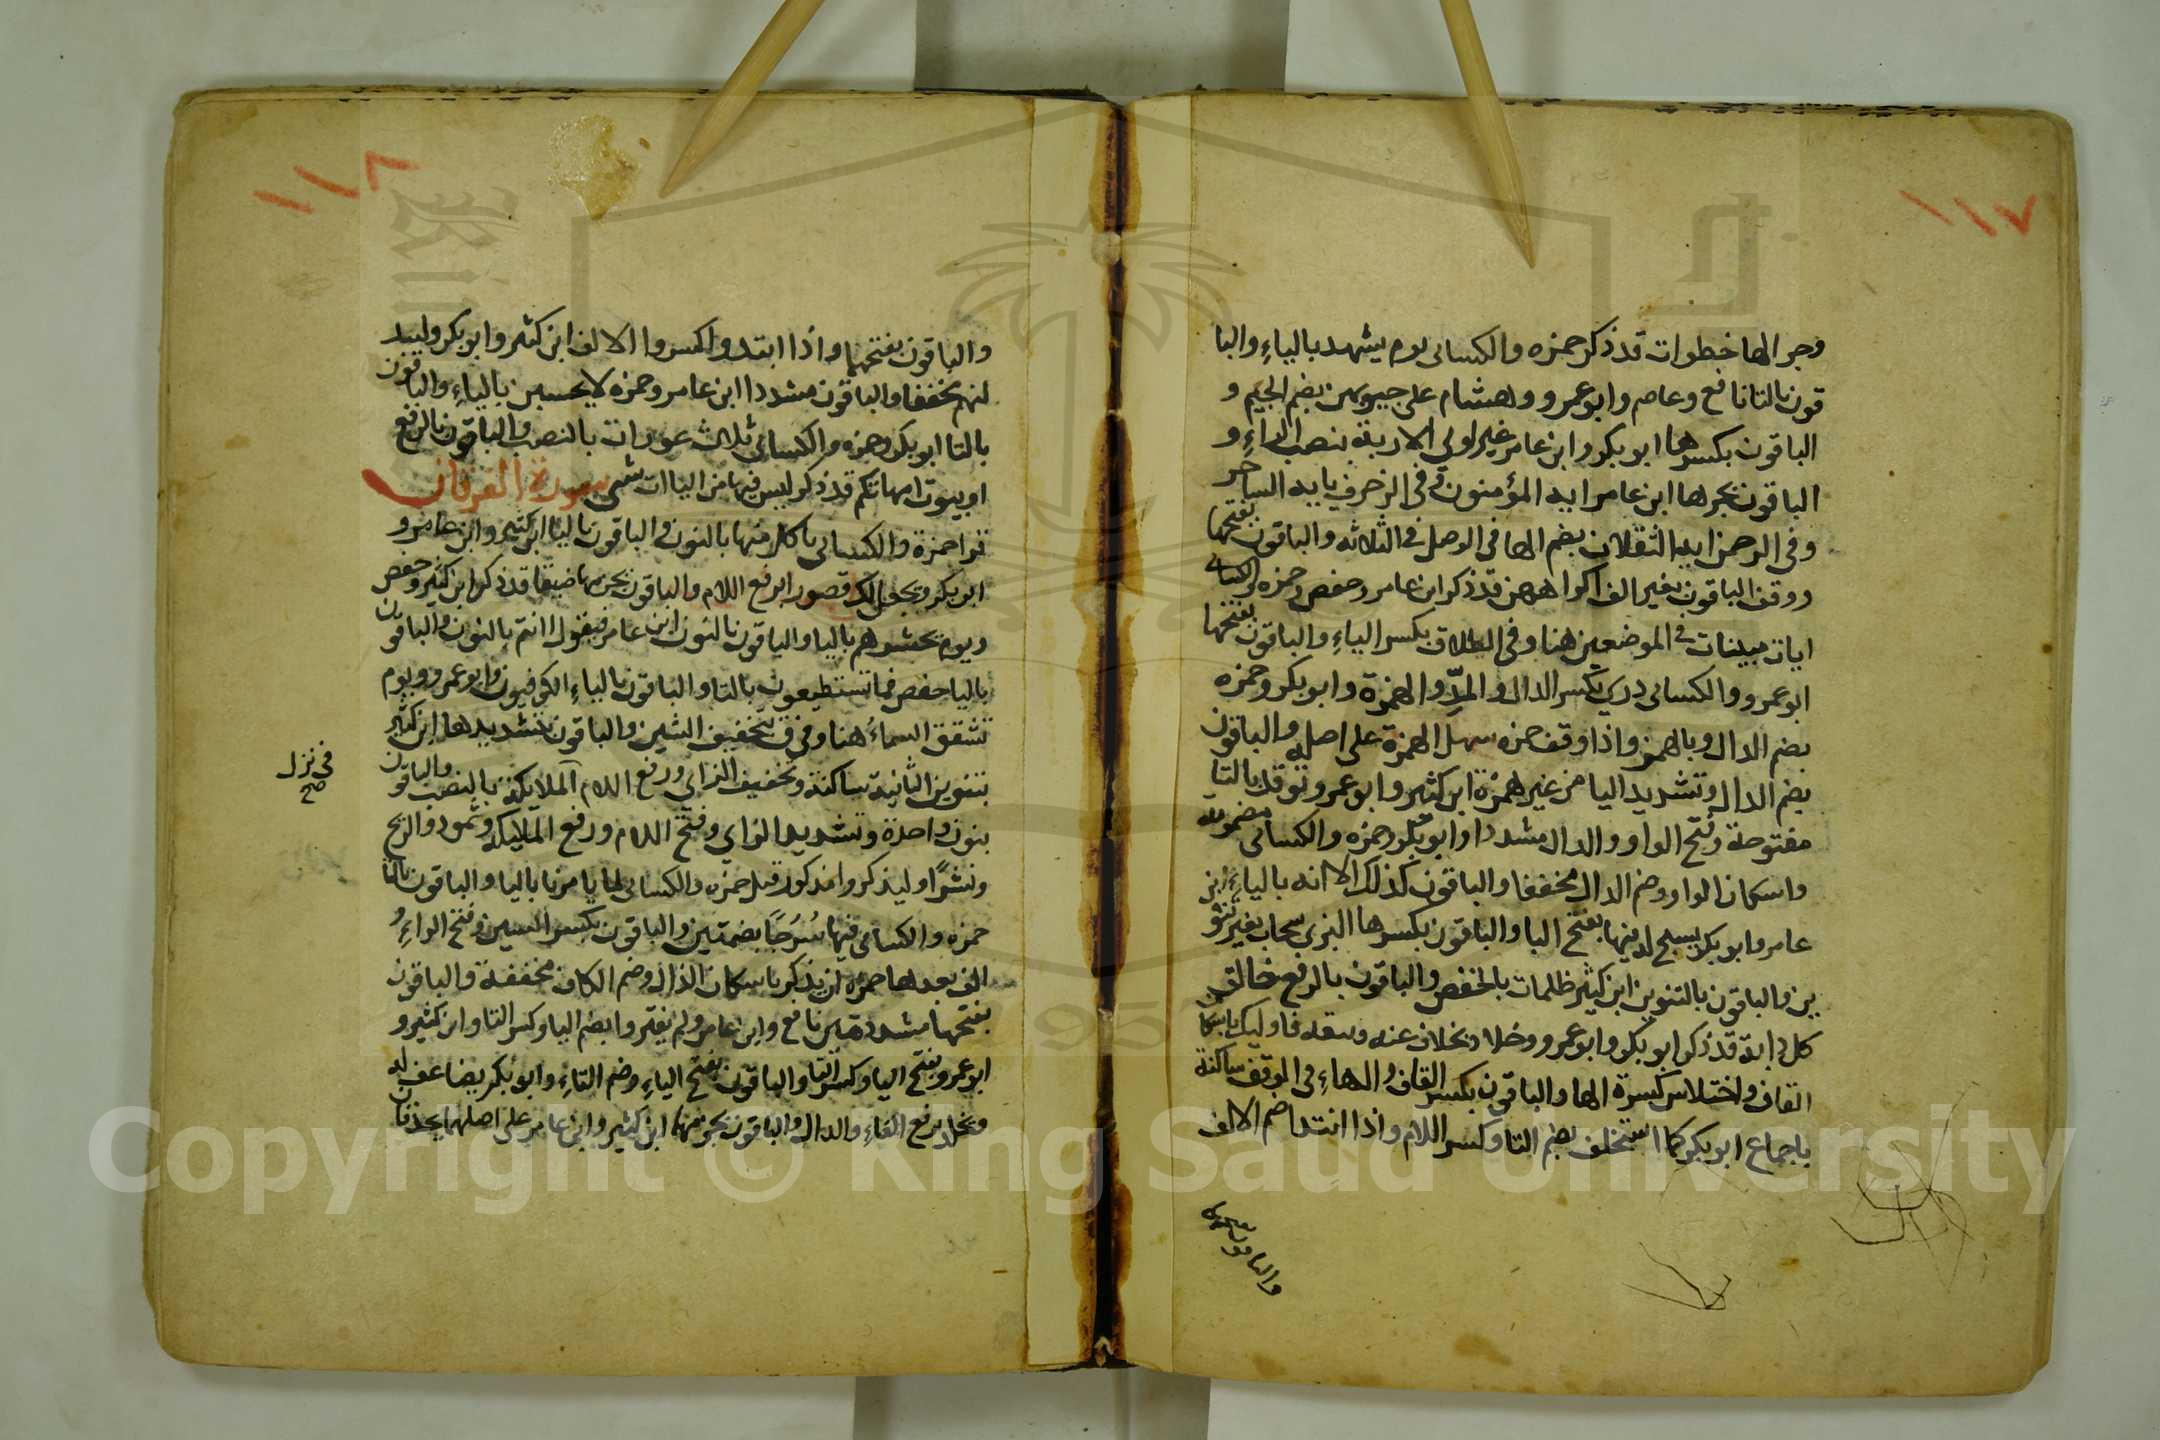 ١١٧
وجر الها خطوات قد ذكر حمزه والكسائى يوم يشهد بالياء والبا
قون بالتا نافع وعاصم وابو عمرو وهشام على جيوبهن بضم الجيم و
الباقون بكسرها ابو بكر وابن عامر غير اولي الاربة بنصب الراء و
الباقون بجرها ابن عامر ايه المؤمنون وفى الزخرف يايه الساحر
وفى الرحمن ايه الثقلان بضم الها فى الوصل فى الثلاثه والباقون بفتحها
ووقف الباقون بغير الف اكراههن قد ذكر ابن عامر وحفص وحمزه والكسائى
ايات مبينات فى الموضعين هنا وفى الطلاق بكسر الياء والباقون بفتحها
ابو عمرو والكسائى درى بكسر الدال والمدّ والهمزة وابو بكر وحمزه
بضم الدال وبالهمز واذا وقف حمزه سهل الهمزة على اصله والباقون
بضم الدال وتشديد اليا من غير همزة ابن كثير وابو عمرو توقد بالتا
مفتوحة وفتح الواو والدال مشددا وابو بكر وحمزه والكسائى مضمومة
واسكان الواو وضم الدال مخففا والباقون كذلك الا انه بالياء ابن
عامر وابو بكر يسبح له فيها بفتح البا والباقون بكسرها البزى سحاب بغير تنو
ين والباقون بالتنوين ابن كثير ظلمات بالخفض والباقون بالرفع خالق
كل دابة قد ذكر ابو بكر وابو عمرو وخلاد بخلاف عنه ويتقه فاوليك باسكان
القاف واختلاس كسرة الها والباقون بكسر القاف والهاء فى الوقف ساكنة
باجماع ابو بكر كما استخلف بضم التا وكسر اللام واذا ابتدا ضم الالف
١١٨
والباقون بفتحهما واذا ابتدوا كسروا الالف ابن كثير وابو بكر وليبد
لنهم مخففا والباقون مشددا ابن عامر وحمزه لا يحسبن بالياء والباقون
بالتا ابو بكر وحمزه والكسائى ثلاث عورات بالنصب والباقون بالرفع
او بيوت امهاتكم قد ذكر ليس فيها من الياات شى سورة الفرقان
قرا حمزة والكسائى ناكل منها بالنون والباقون باليا ابن كثير وابن عامر و
ابو بكر ويجعل لك قصورا برفع اللام والباقون بجزمها ضيقا قد ذكر ابن كثير وحفص
ويوم يحشرهم باليا والباقون بالنون ابن عامر فنقول اانتم بالنون والباقون
باليا حفص فما تستطيعون بالتا والباقون بالياء الكوفيون وابو عمرو ويوم
تشقق السماءُ هنا وفى ق بتخفيف الشين والباقون بتشديدها ابن كثير
بتنوين الثانية ساكنة وتخفيف الزاى ورفع اللام الملايكة بالنصب والباقون
فى نزل
صح
بنون واحدة وتشديد الزاى وفتح اللام ورفع الملايكة وثمود والريح
ونشرًا وليذكروا مذكور قبل حمزه والكسائى لما يامرنا باليا والباقون بالتا
حمزه والكسائى فيها سُرُجًا بضمتين والباقون بكسر السين وفتح الراء و
الف بعدها حمزه ان يذكر باسكان الذال وضم الكاف مخففة والباقون
بفتحهما مشددتين نافع وابن عامر ولم يقتروا بضم اليا وكسر التا وابن كثير و
ابو عمرو بفتح اليا وكسر التا والباقون بفتح الياء وضم التاء وابو بكر يضاعف له
ويخلد برفع الفاء والدال والباقون بجزمهما ابن كثير وابن عامر على اصلهما يحذفان
Copyright © King Saud University